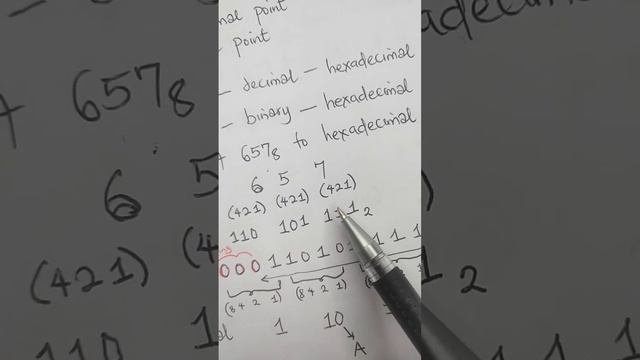 nal point
point
– decimal – hexadecimal
– binary – hexadecimal
657₈ to hexadecimal
6 5 7
(421) (421) (421)
110 101 111₂
000110101111
(8421) (8421)
1 10
A